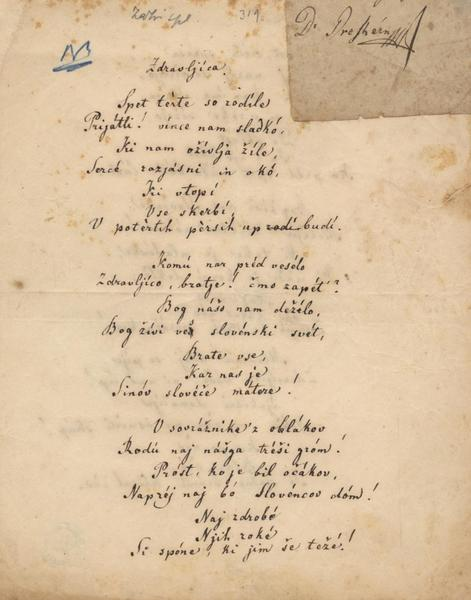 319.
Dr Prešérn
NB
Zdravljica.
Spet tèrte so rodíle
Prijátli! vince nam sladkó,
Ki nam oživlja žíle,
Sercé razjásni in okó,
Ki vtopí
Vse skerbí,
V potértih pèrsih up rodí budí.
Komú nar préd vesélo
Zdravljíco, bratje! čmo zapét'?
Bog nášo nam deželo,
Bog živi ves slovénski svét,
Brate vse,
Kar nas je
Sinóv slovéče mátere!
V sovrážnike 'z oblákov
Rodú naj nášga tréši gróm!
Próst, ko je bil očákov,
Naprêj naj bó Slovéncov dóm!
Naj zdrobé
Njih roké
Si spóne, ki jim še težé!